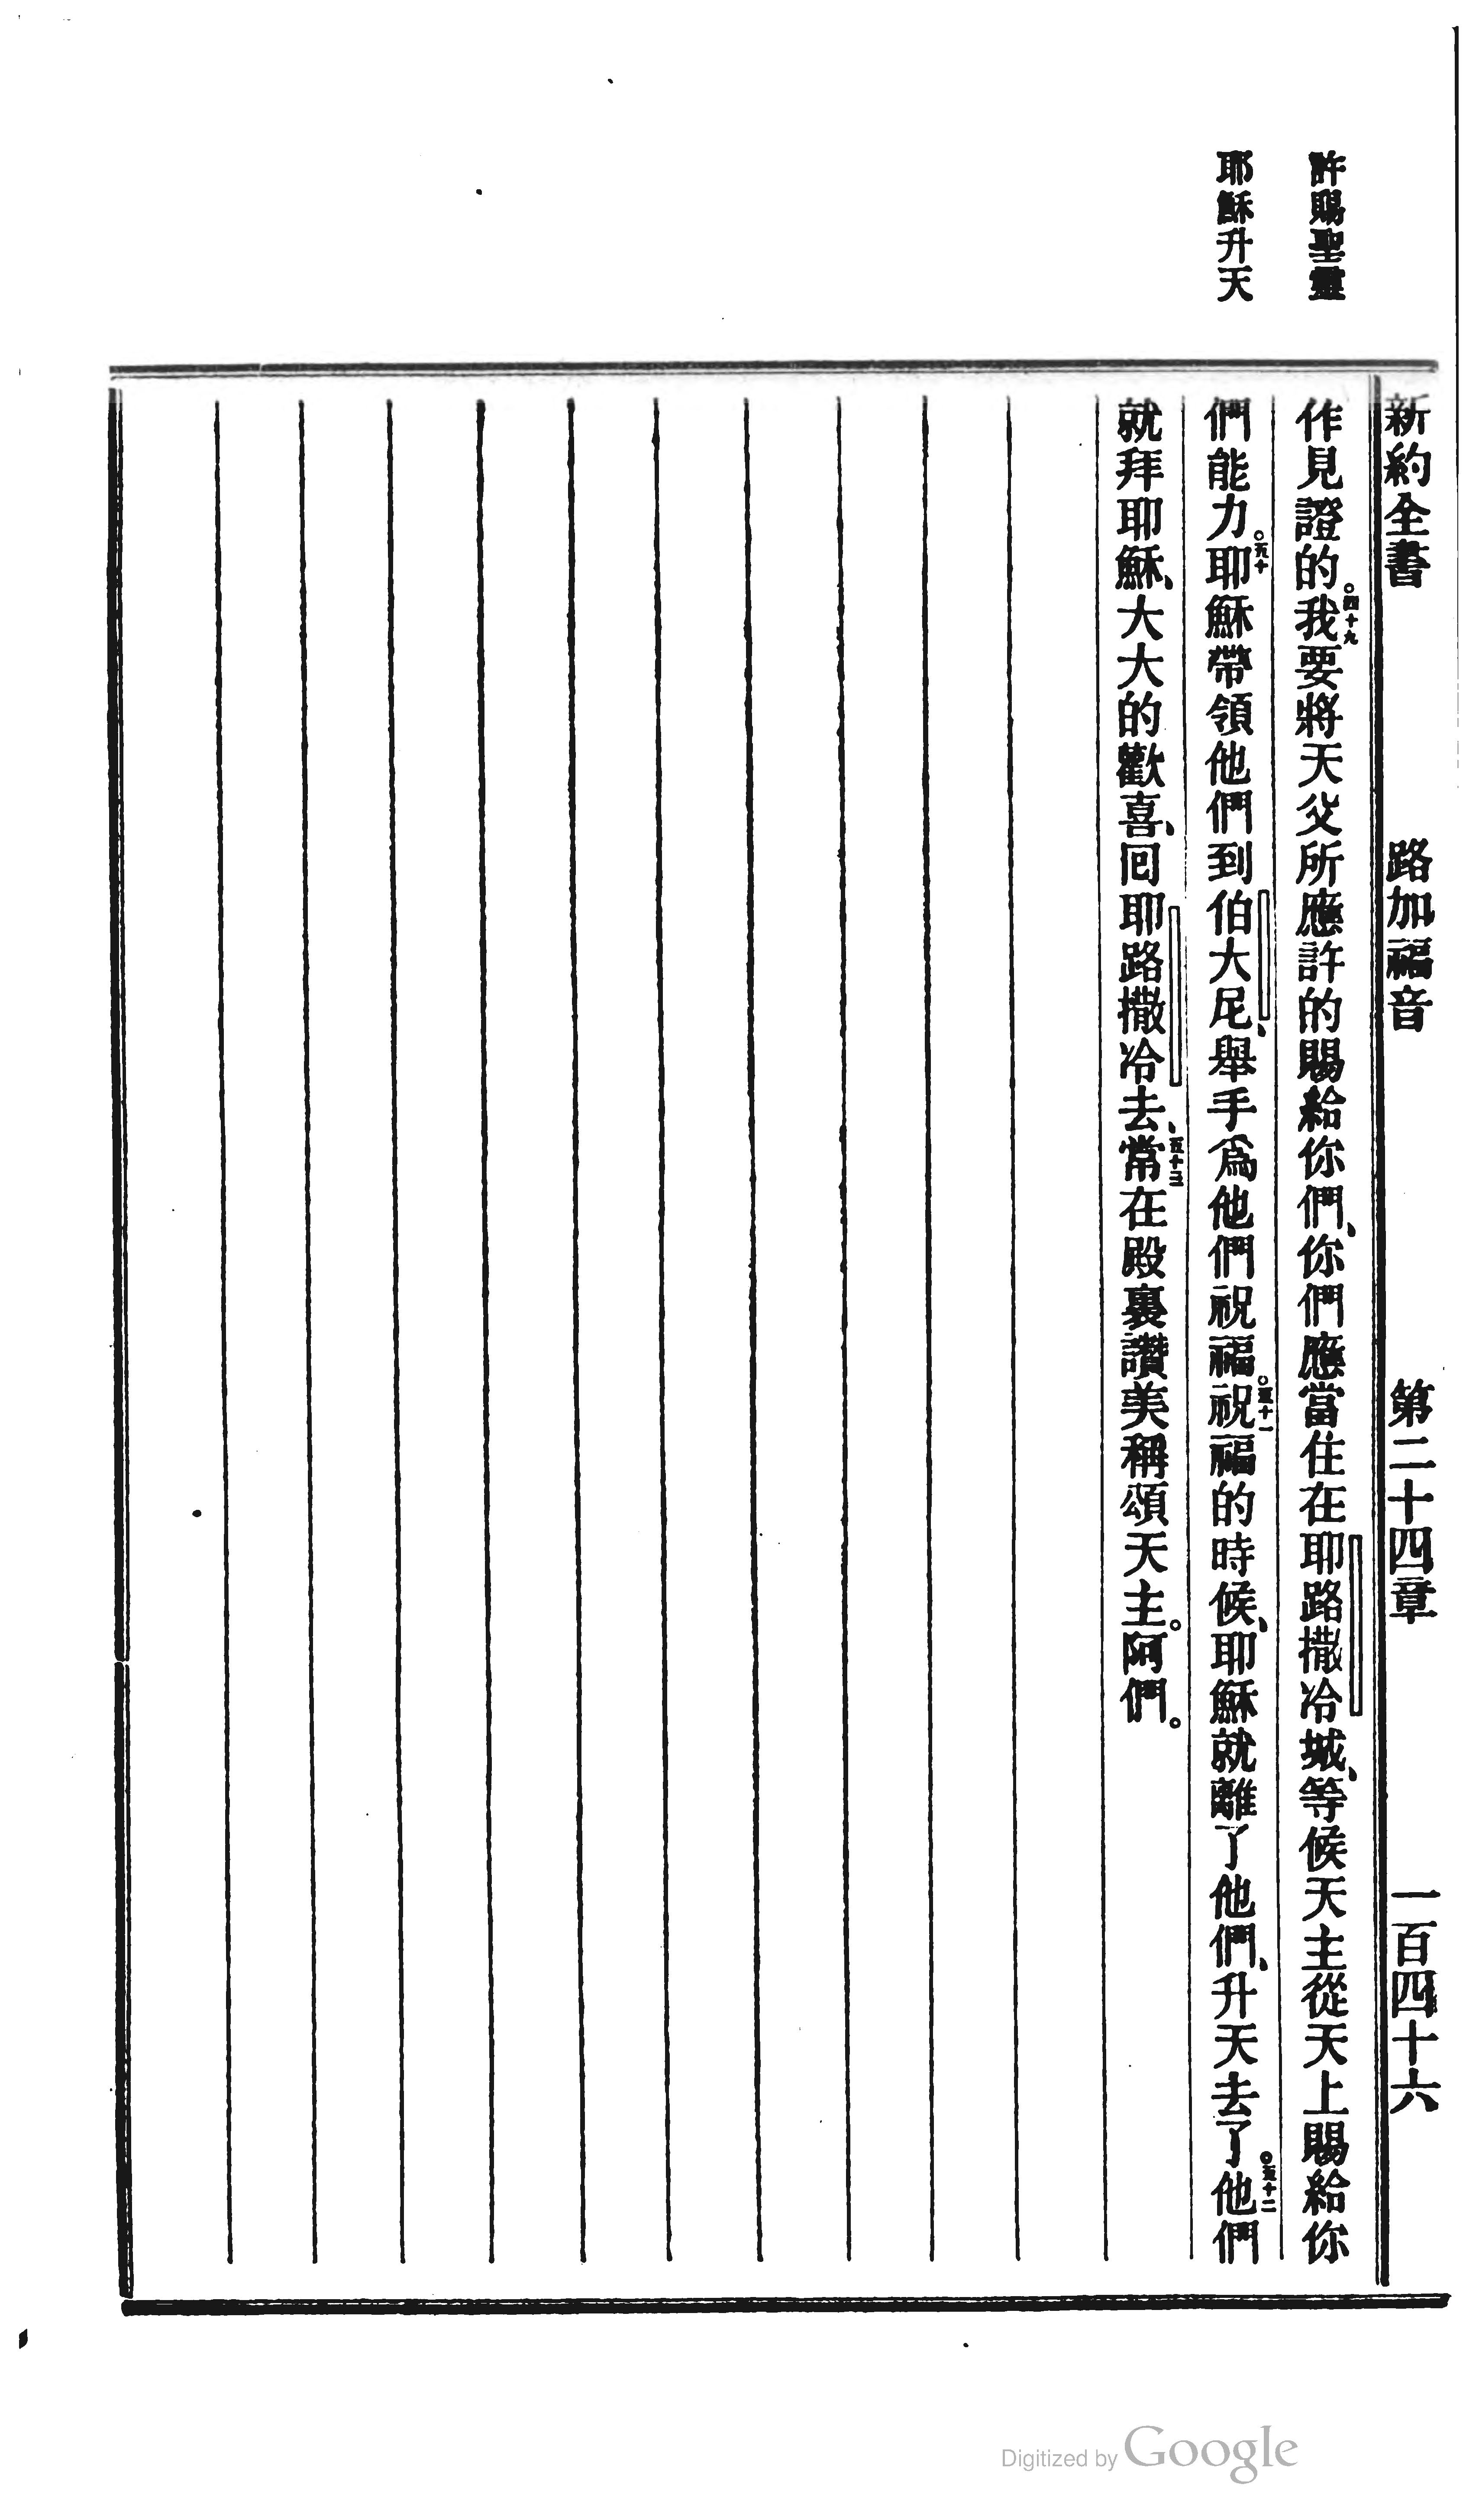 許賜聖靈
耶穌升天
新約全書 路加福音 第二十四章 一百四十六
作見證的。四十九我要將天父所應許的賜給你們、你們應當住在耶路撒冷城、等候天主從天上賜給你
們能力。五十耶穌帶領他們到伯大尼、舉手爲他們祝福。五十一祝福的時候、耶穌就離了他們、升天去了。五十二他們
就拜耶穌、大大的歡喜、回耶路撒冷去、五十三常在殿裏讚美稱頌天主。阿們。
Digitized by Google